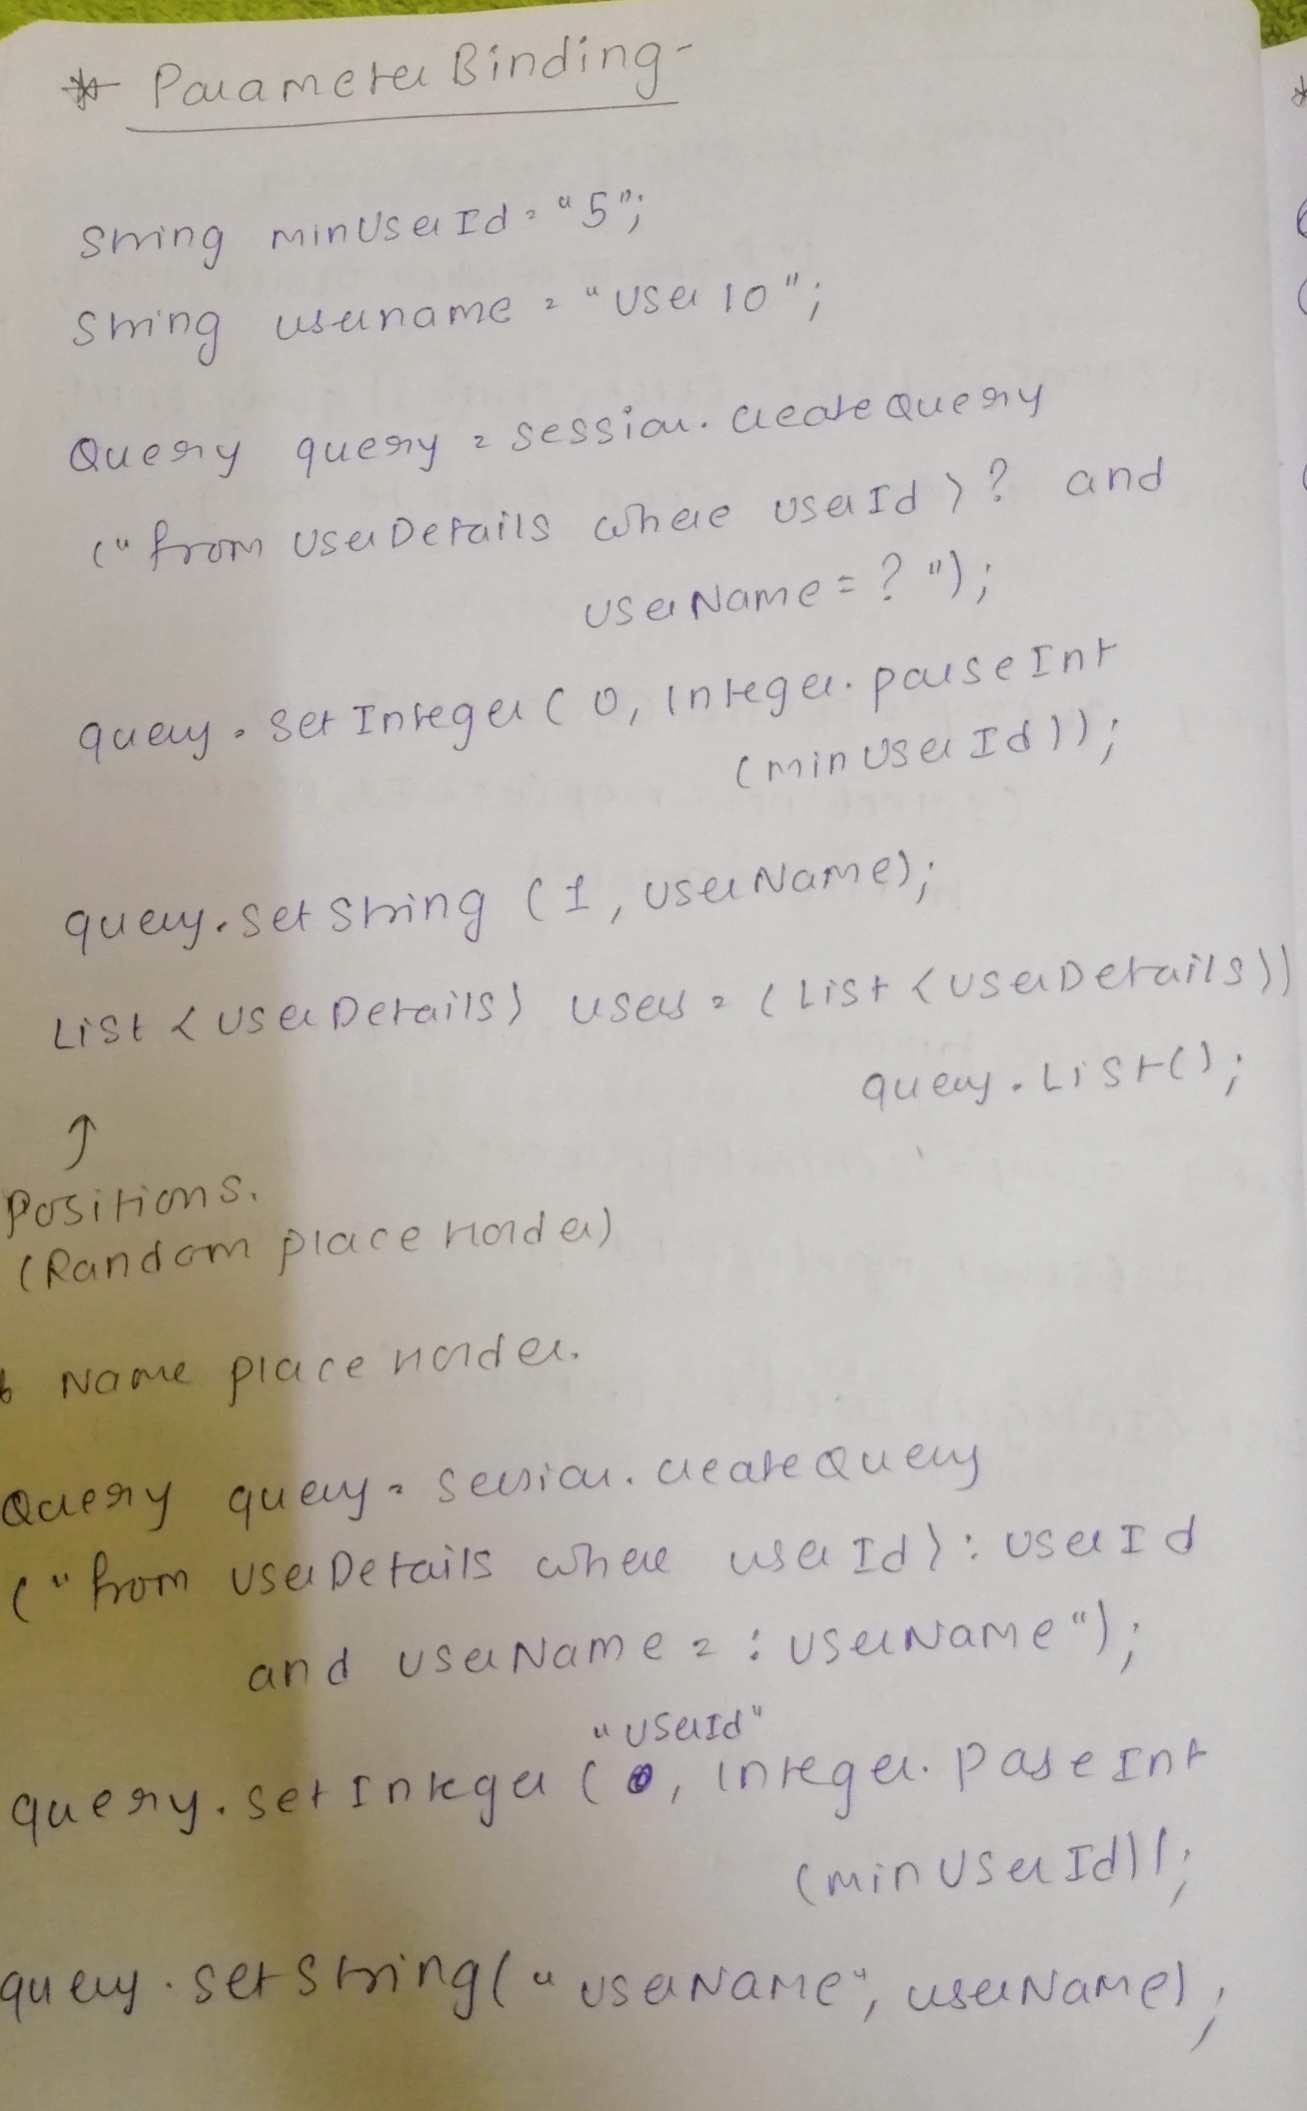 * Parameter Binding -
String minUserId = "5";
String username = "User 10";
Query query = session. createQuery
("from UserDetails where userId > ? and
UserName = ? ");
query. setInteger ( 0, Integer. parseInt
(minUserId));
query. setString ( 1, userName);
List <UserDetails> users = (List <UserDetails>)
query. List();
↑
Positions.
(Random place Holder)
Name place holder.
Query query = session. createQuery
("from UserDetails where userId > : userId
and userName = : userName");
"userId"
query. setInteger ( , Integer. PaseInt
(minUserId));
query. setString("userName", userName);